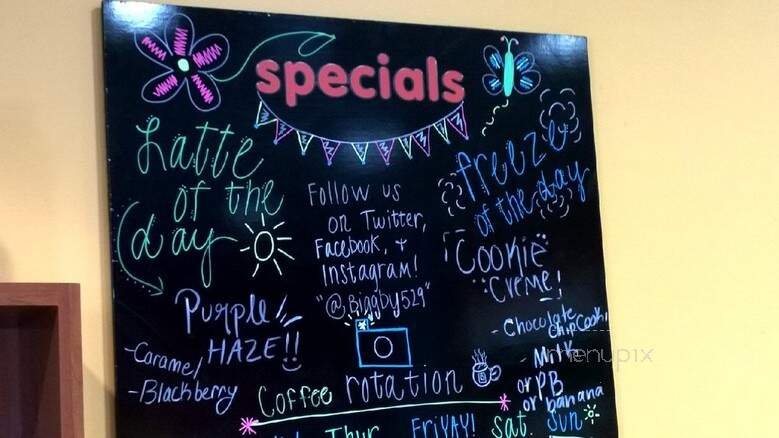 specials
Latte
of the
day
Purple
HAZE!!
-Caramel
-Blackberry
Follow us
on Twitter,
Facebook, +
Instagram!
"@Biggby529"
freeze
of the day
Cookie
Creme!
- Chocolate
Chip Cookie
- Milk
or PB
or banana
Coffee rotation
Thur FriYAY! Sat. Sun
menupix